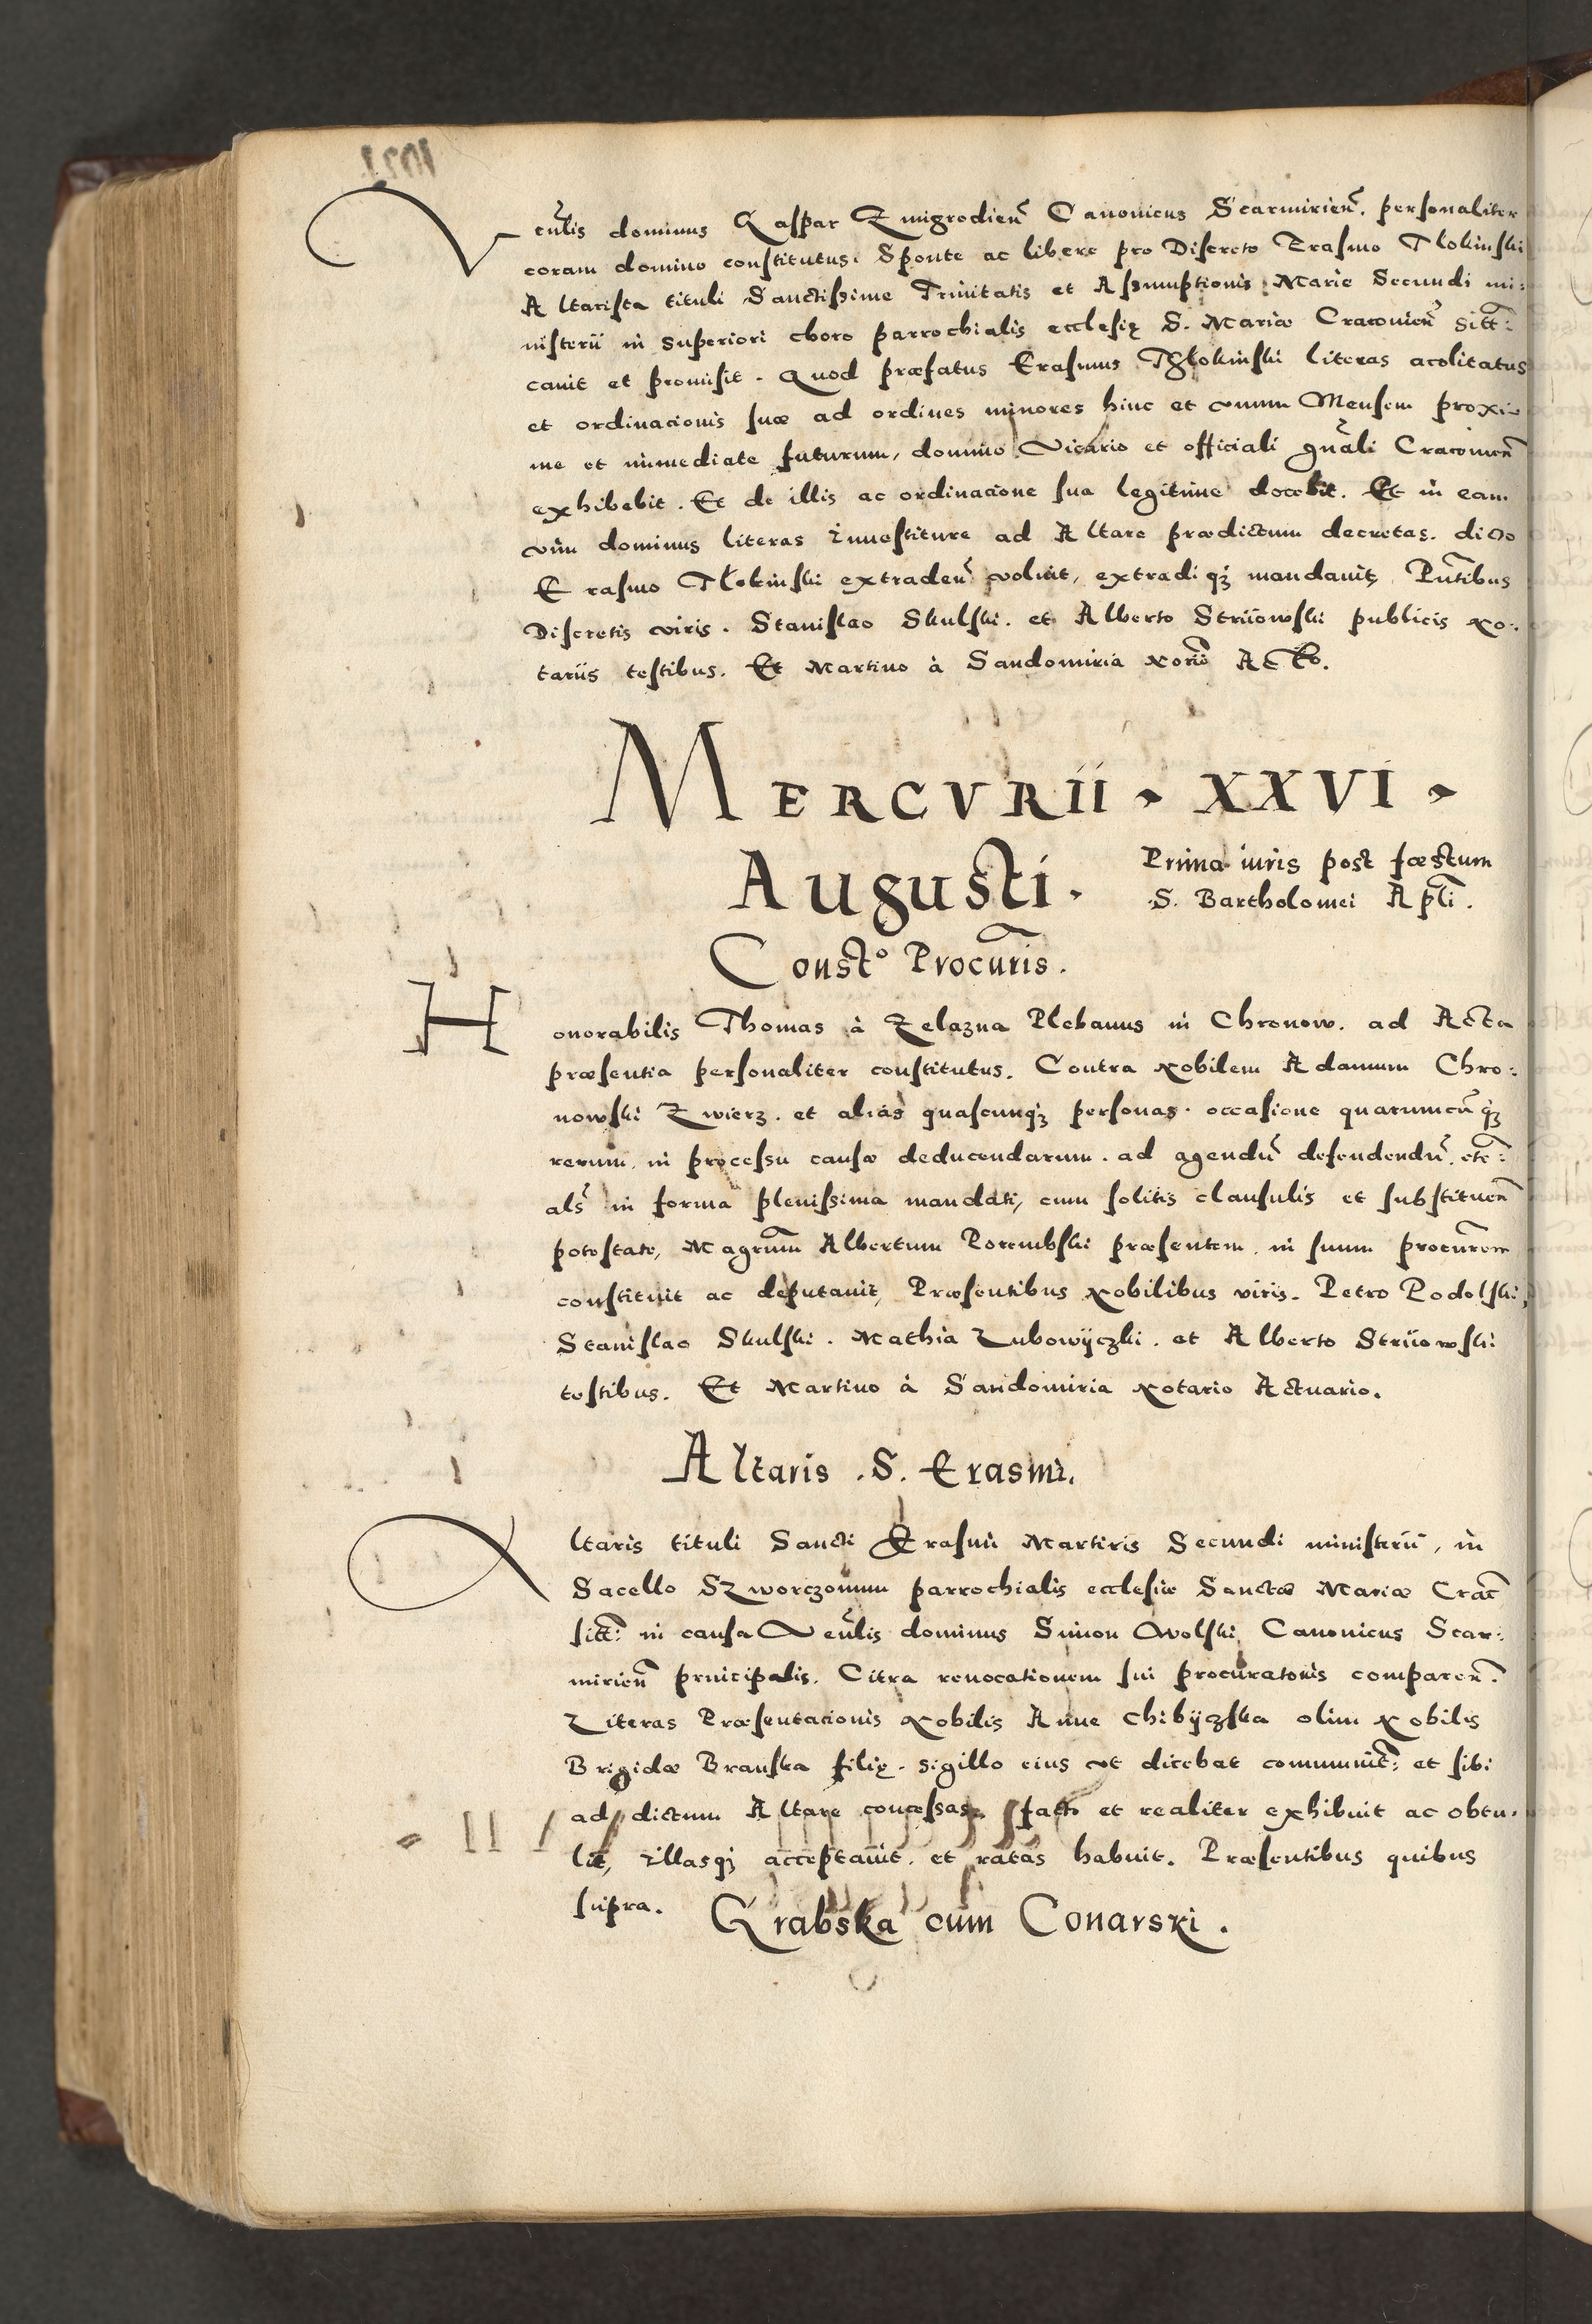 Venlis dominus Gaspar Zmigrodien Canonicus Scarmirien. personaliter
coram domino constitutus. Sponte ac libere pro Discreto Erasmo Tlokinski
Altarista tituli Sanctissime Trinitatis et Assumptionis Marie Secundi mi:
nisterii in superiori choro parrochialis ecclesię S. Mariæ Cracovien sitt:
cavit et promisit. Quod præfatus Erasmus Tlokinski literas acolitatus
et ordinacionis suæ ad ordines minores hinc et unum Mensem proxi:
me et immediate futurum, domino Vicario et officiali gnali Cracovien
exhibebit. Et de illis ac ordinacione sua legitime docebit. Et in eam
vim dominus literas Investiture ad Altare prædictum decretas. dicto
Erasmo Tlokinski extraden voluit, extradiqz mandavit, Pntibus
Discretis viris. Stanislao Skulski. et Alberto Strijowski publicis No:
tariis testibus. Et Martino à Sandomiria Norio Actto.
MERCVRII XXVI
Augusti.
Prima iuris post fæstum
S. Bartholomei Apli.
Const° Procuris.
Honorabilis Thomas à Zelazna Plebanus in Chronow. ad Acta
præsentia personaliter constitutus. Contra Nobilem Adamum Chro:
nowski Zwierz. et alias quascunqz personas. occasione quarumcuqz
rerum in processu causæ deducendarum. ad agendu defendendu. etc:
als in forma plenissima mandati, cum solitis clausulis et substituen
potestate, Magrum Albertum Porembski præsentem in suum procurem
constituit ac deputavit, Præsentibus Nobilibus viris. Petro Podolski,
Stanislao Skulski. Mathia Lubowijczki. et Alberto Strijowski
testibus. Et Martino à Sandomiria Notario Actuario.
Altaris .S. Erasmi.
Altaris tituli Sancti Erasmi Martiris Secundi ministerii, in
Sacello Szworczonum parrochialis ecclesiæ Sanctæ Mariæ Crac
sitt: in causa Venlis dominus Simon Wolski Canonicus Scar:
mirien principalis. Citra revocationem sui procuratoris comparen.
Literas Præsentacionis Nobilis Anne Chibijczska olim Nobilis
Brigidæ Branska filię. sigillo eius ut dicebat communit: et sibi
ad dictum Altare concessas, facto et realiter exhibuit ac obtu.
lit, illasqz acceptavit. et ratas habuit. Præsentibus quibus
supra.
Grabska cum Conarski.